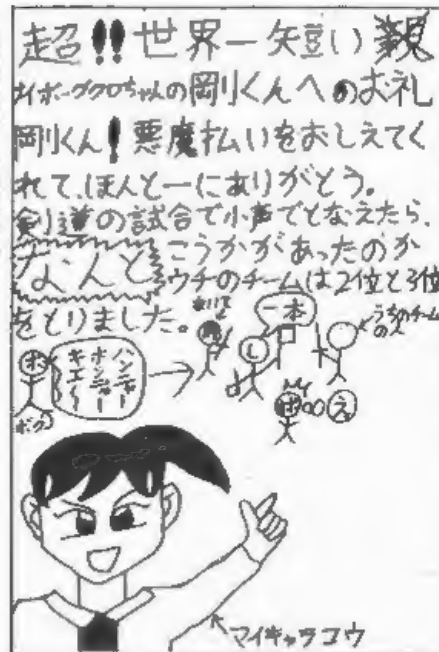 超!!世界一短い親
サイボーグクロちゃんの剛くんへのお礼
剛くん!悪魔払いをおしえてく
れて、ほんとーにありがとう。
剣道の試合で小声でとなえたら、
なんと
こうかがあったのか
ウチのチームは2位と3位
をとりました。
ホ
ボク
ハンニャー
ホンニャー
キエ〜
一本
うちのチーム
の人
え
マイキャラコウ